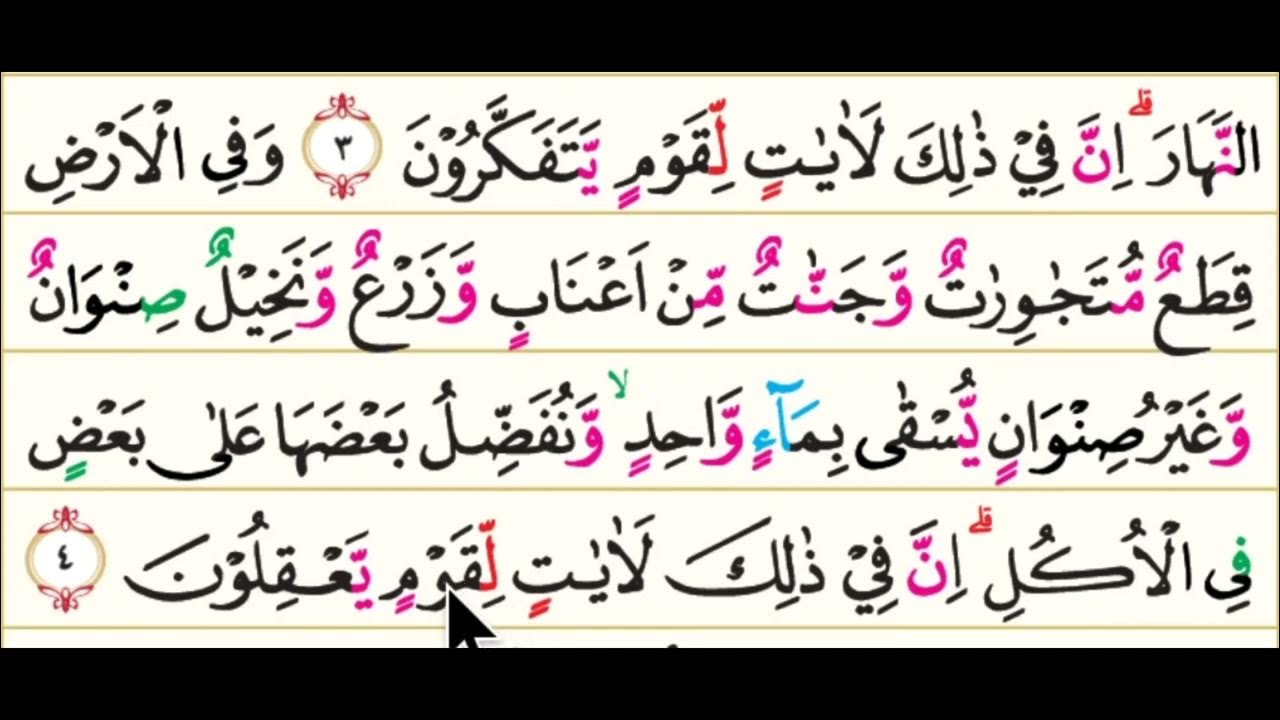 النَّهَارَ ۗ اِنَّ فِيْ ذٰلِكَ لَاٰيٰتٍ لِّقَوْمٍ يَّتَفَكَّرُوْنَ ٣ وَفِى الْاَرْضِ
قِطَعٌ مُّتَجٰوِرٰتٌ وَّجَنّٰتٌ مِّنْ اَعْنَابٍ وَّزَرْعٌ وَّنَخِيْلٌ صِنْوَانٌ
وَّغَيْرُ صِنْوَانٍ يُّسْقٰى بِمَاۤءٍ وَّاحِدٍ ۙ وَّنُفَضِّلُ بَعْضَهَا عَلٰى بَعْضٍ
فِى الْاُكُلِ ۗ اِنَّ فِيْ ذٰلِكَ لَاٰيٰتٍ لِّقَوْمٍ يَّعْقِلُوْنَ ٤